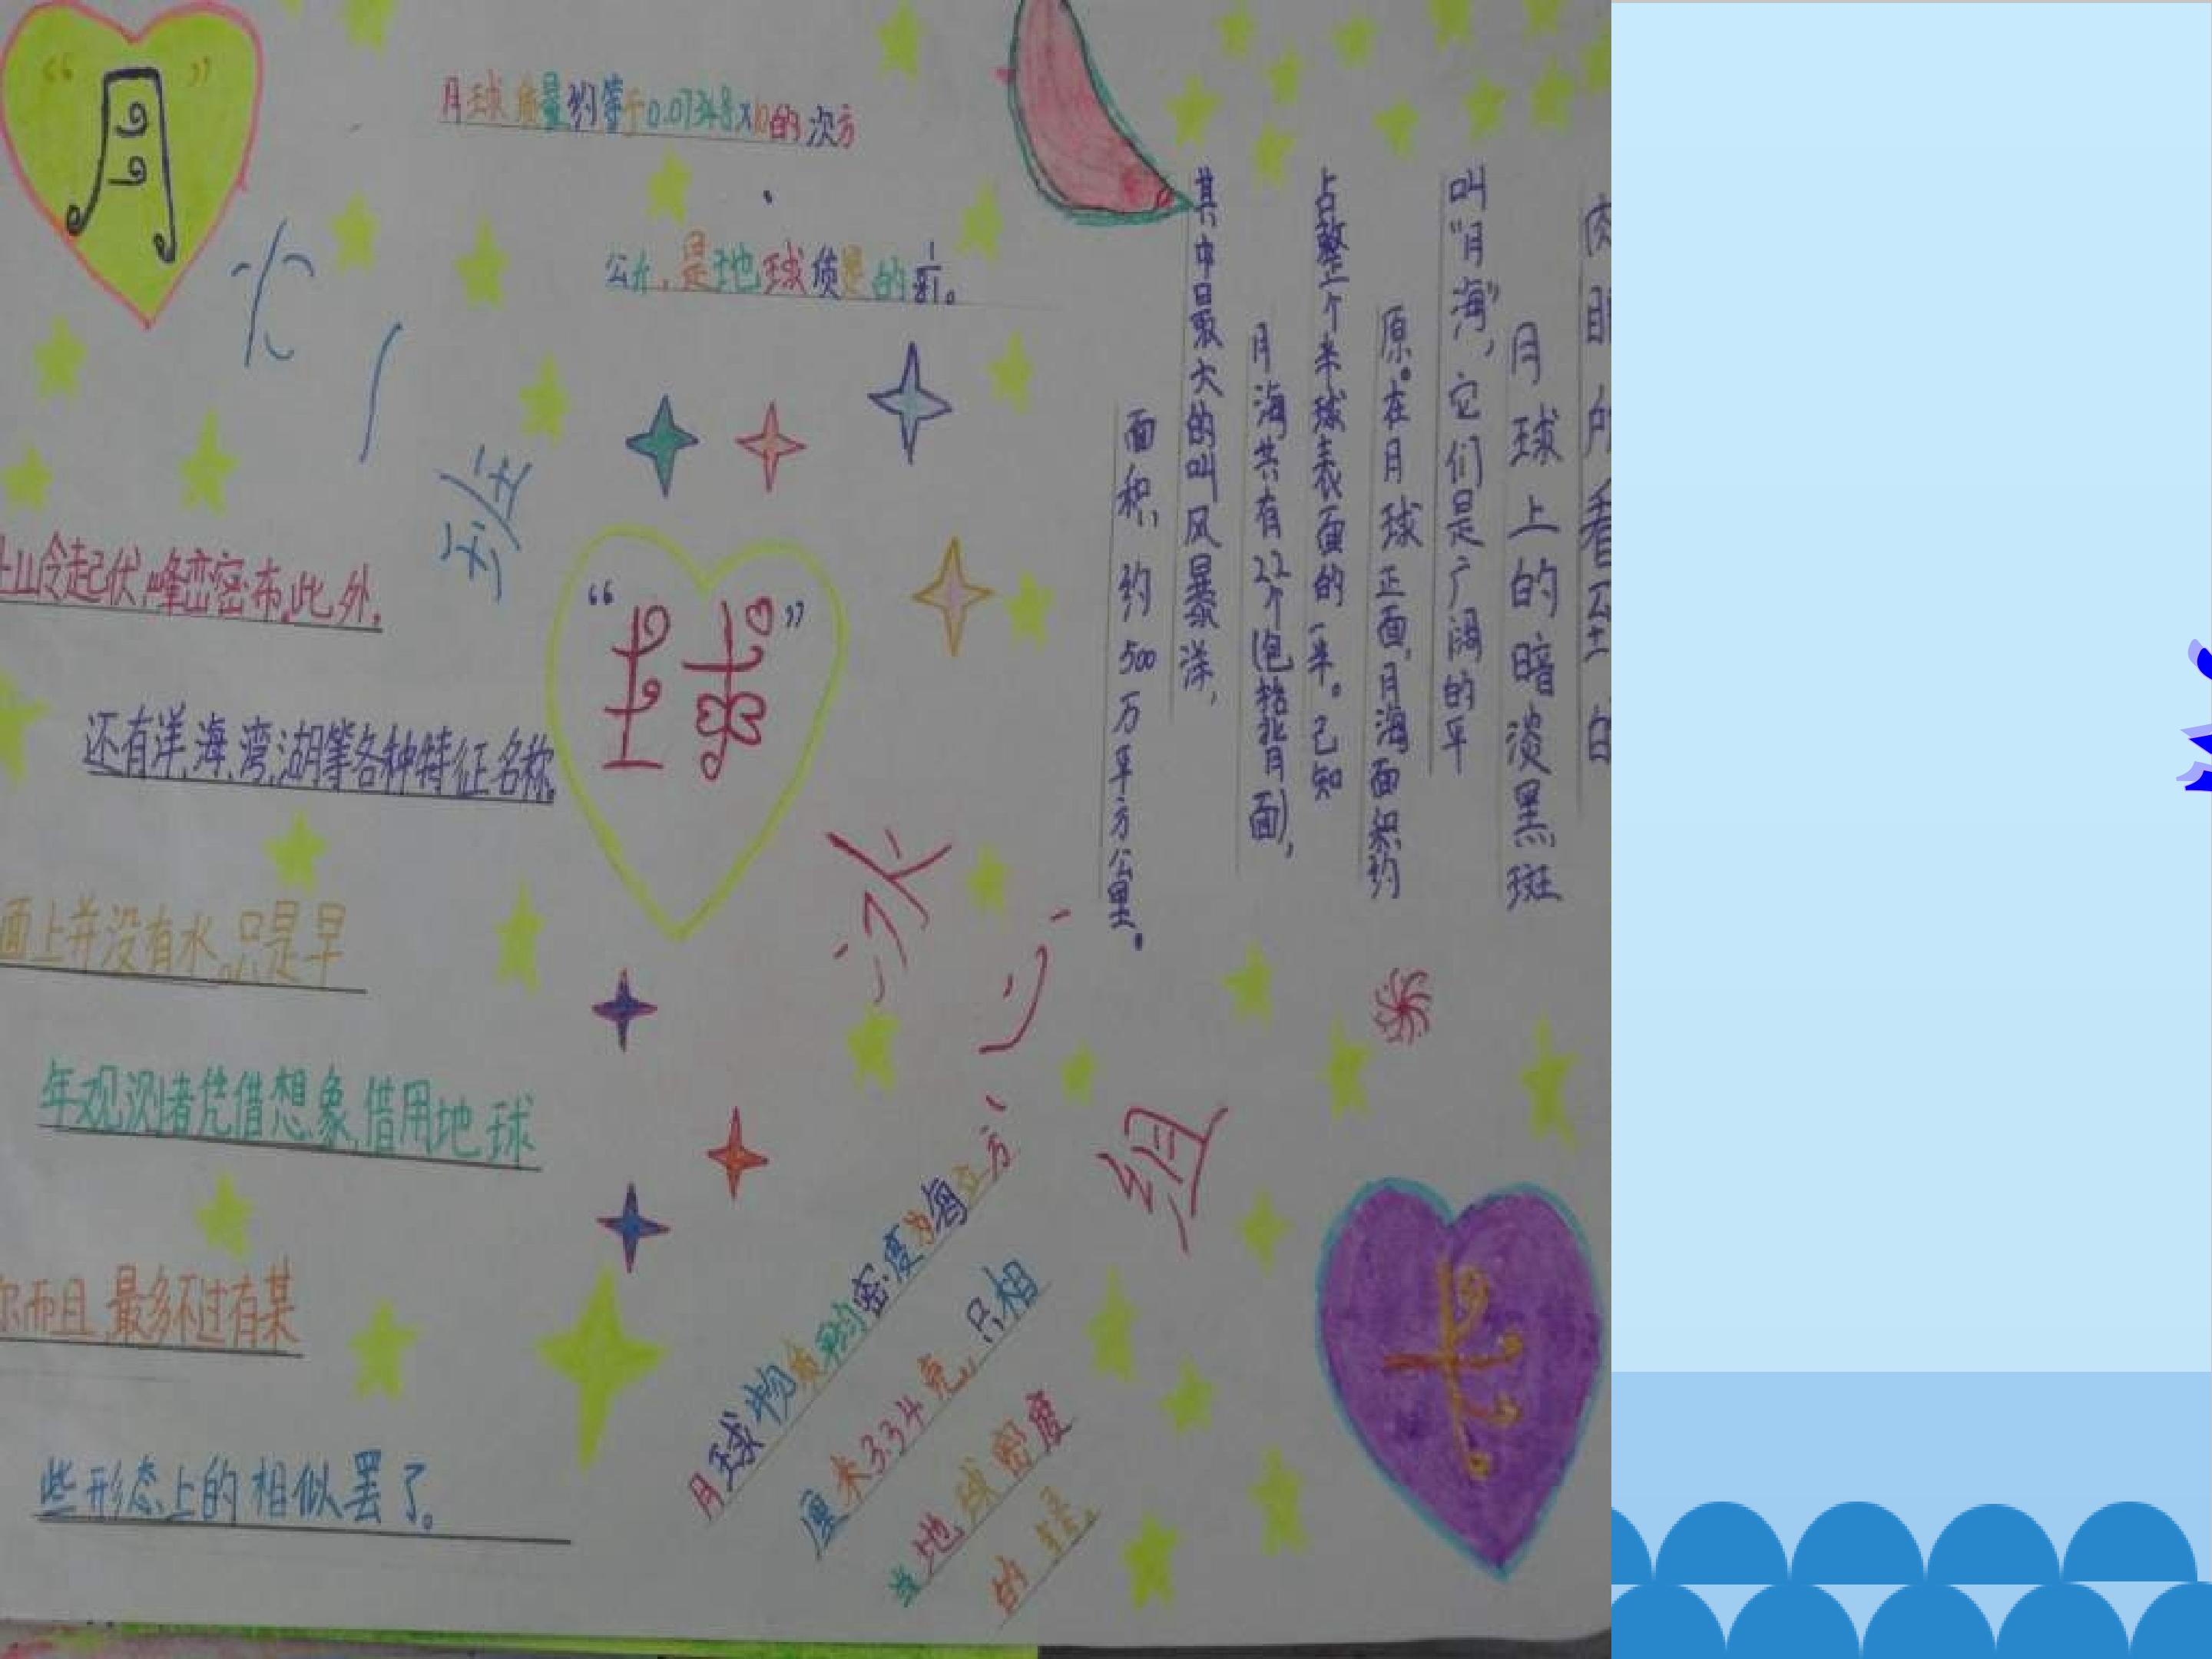 “月”
月球质量约等于0.07348x10的次方
公斤,是地球质量的
上山令起伏,峰峦密布,此外,
还有洋,海,湾,湖等各种特征名称。
面上并没有水,只是早
年观测者凭借想象,借用地球
尔而且,最多不过有某
些形态上的相似罢了。
“土求”
月球上的暗淡黑斑
叫“月海”,它们是广阔的平
原。在月球正面,月海面积约
占整个半球表面的一半。已知
月海共有22个(包括背月面),
其中最大的叫风暴洋,
面积,约500万平方公里。
组
月球物质的密度为每立方
厘米3.34克,只相
当地球密度
的